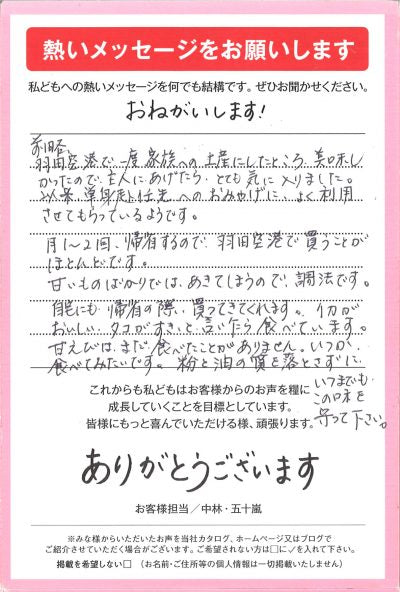 熱いメッセージをお願いします
私どもへの熱いメッセージを何でも結構です。ぜひお聞かせください。
おねがいします!
前略
羽田空港で一度家族への土産にしたところ美味し
かったので、主人にあげたら、とても気に入りました。
以来、単身赴任先へのおみやげに、よく利用
させてもらっているようです。
月1〜2回、帰省するので、羽田空港で買うことが
ほとんどです。
甘いものばかりでは、あきてしまうので、調法です。
自宅にも、帰省の際、買ってきてくれます。イカが
おいしい、タコがすきと言いながら食べています。
甘えびは、まだ食べたことがありません。いつか、
食べてみたいです。粉と油の質を落とさずに
いつまでも
この味を
守って下さい。
これからも私どもはお客様からのお声を糧に
成長していくことを目標としています。
皆様にもっと喜んでいただける様、頑張ります。
ありがとうございます
お客様担当/中林・五十嵐
※みな様からいただいたお声を当社カタログ、ホームページ又はブログで
ご紹介させていただく場合がございます。ご希望されない方は□に✓を入れて下さい。
掲載を希望しない□ (お名前・ご住所等の個人情報は一切掲載いたしません)